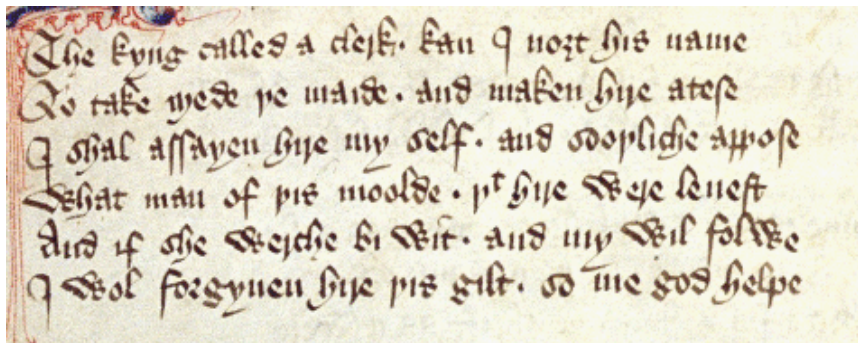 The kyng called a clerk· kan I noȝt his name
To take Mede þe maide· and maken hire atese
I shal assayen hire my self· and sooþliche appose
What man of þis moolde· þᵗ hire were leuest
And if she werche bi wit· and my wil folwe
I wol forgyuen hire þis gilt· so me god helpe